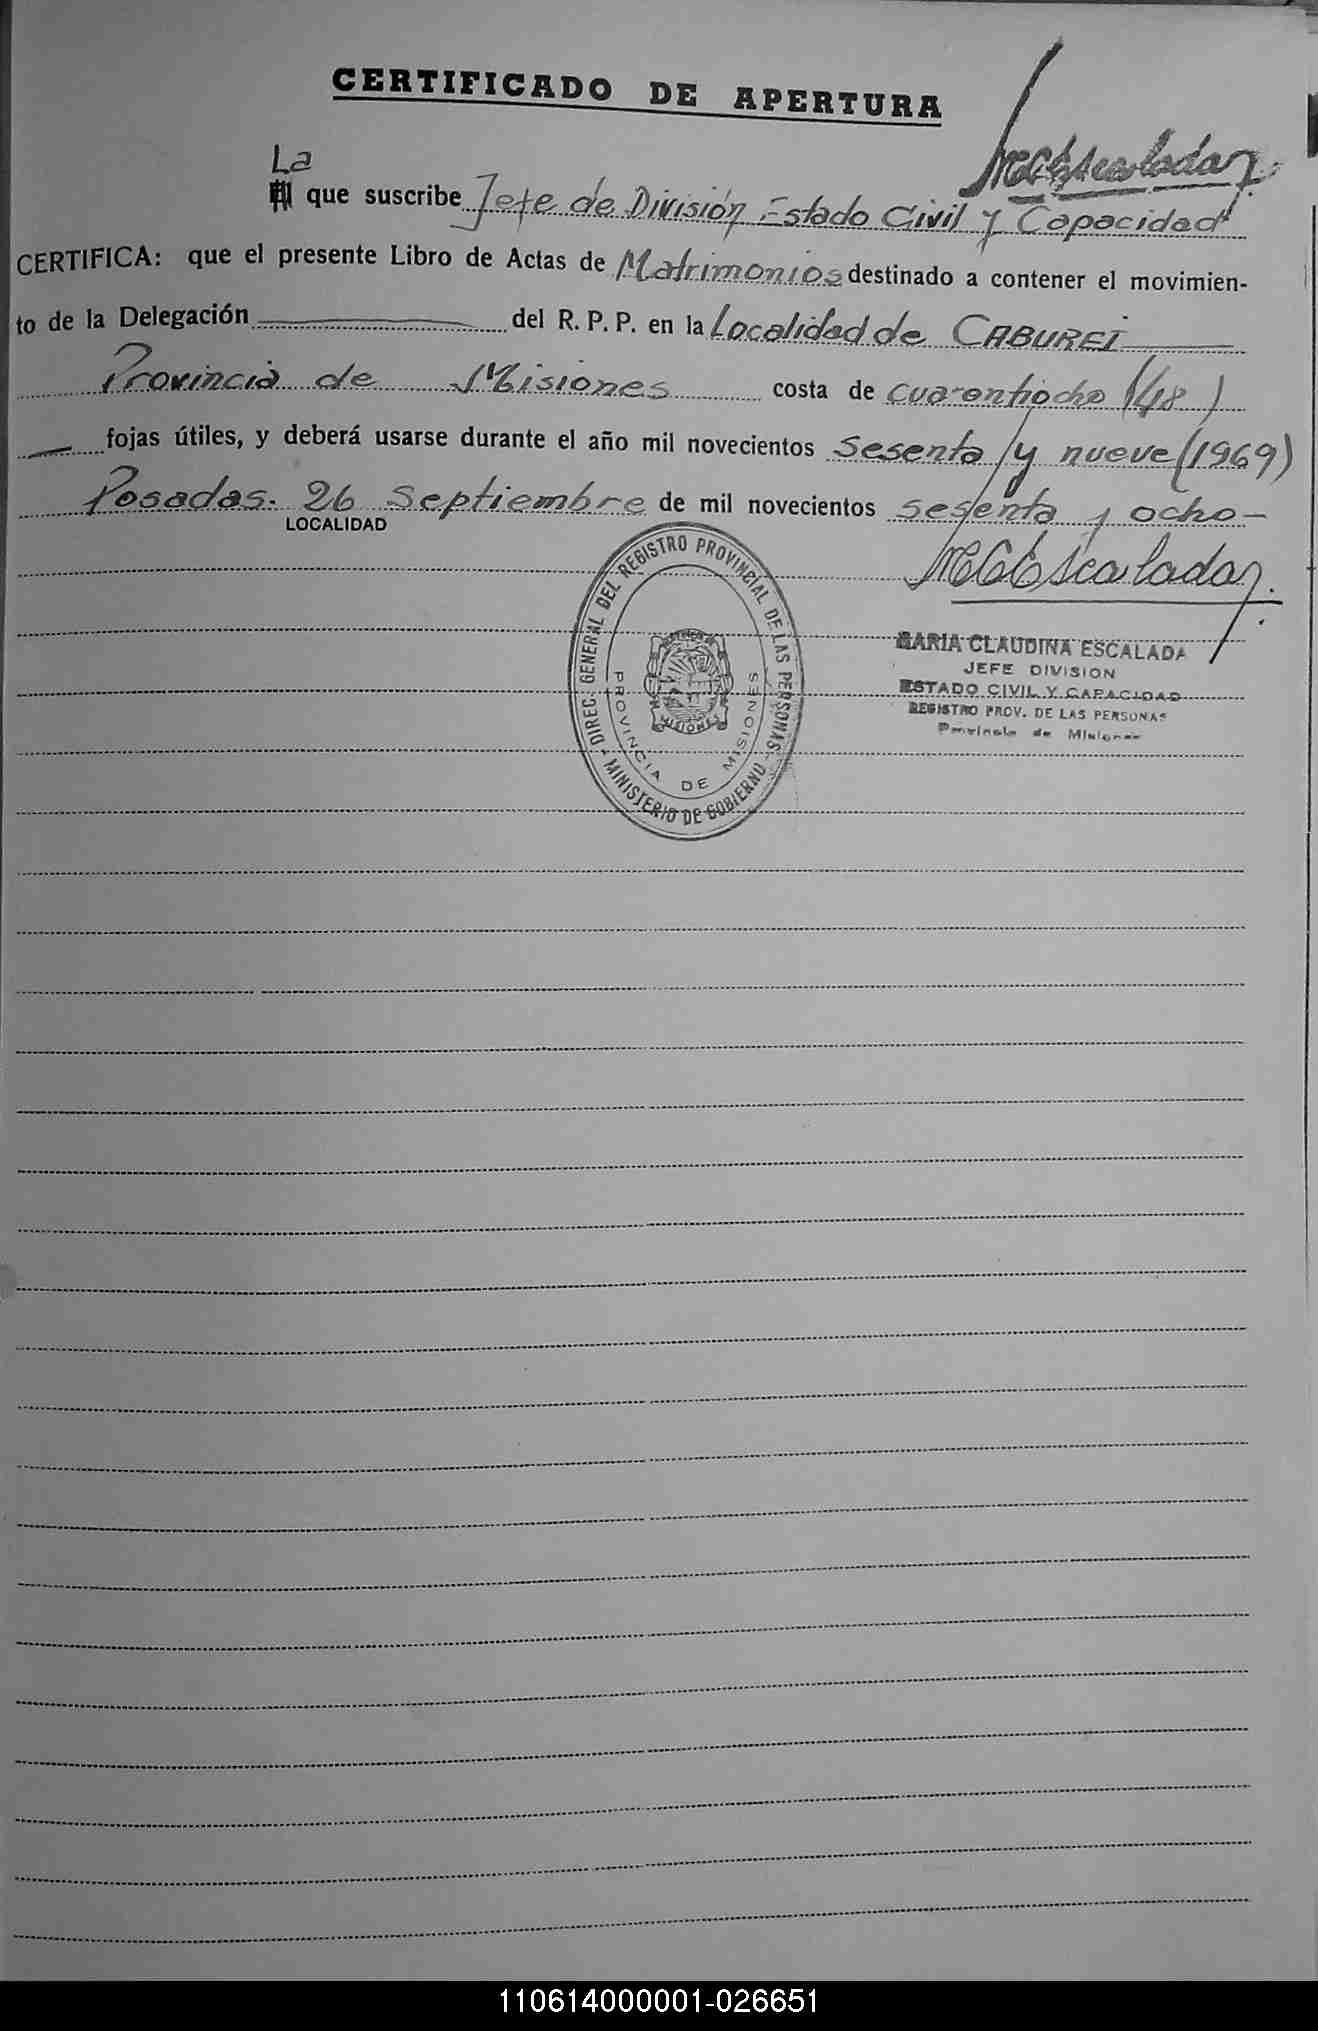 CERTIFICADO DE APERTURA
MCEscalada
La
El que suscribe Jefe de División Estado Civil y Capacidad
CERTIFICA: que el presente Libro de Actas de Matrimonios destinado a contener el movimien-
to de la Delegación del R. P. P. en la Localidad de CABUREI
Provincia de Misiones costa de cuarentiocho (48)
fojas útiles, y deberá usarse durante el año mil novecientos sesenta y nueve (1969)
Posadas. 26 septiembre de mil novecientos sesenta y ocho-
LOCALIDAD
Escalada
DIREC. GENERAL DEL REGISTRO PROVINCIAL DE LAS PERSONAS
MINISTERIO DE GOBIERNO
PROVINCIA DE MISIONES
MISIONES
MARIA CLAUDINA ESCALADA
JEFE DIVISION
ESTADO CIVIL Y CAPACIDAD
REGISTRO PROV. DE LAS PERSONAS
Provincia de Misiones
110614000001-026651